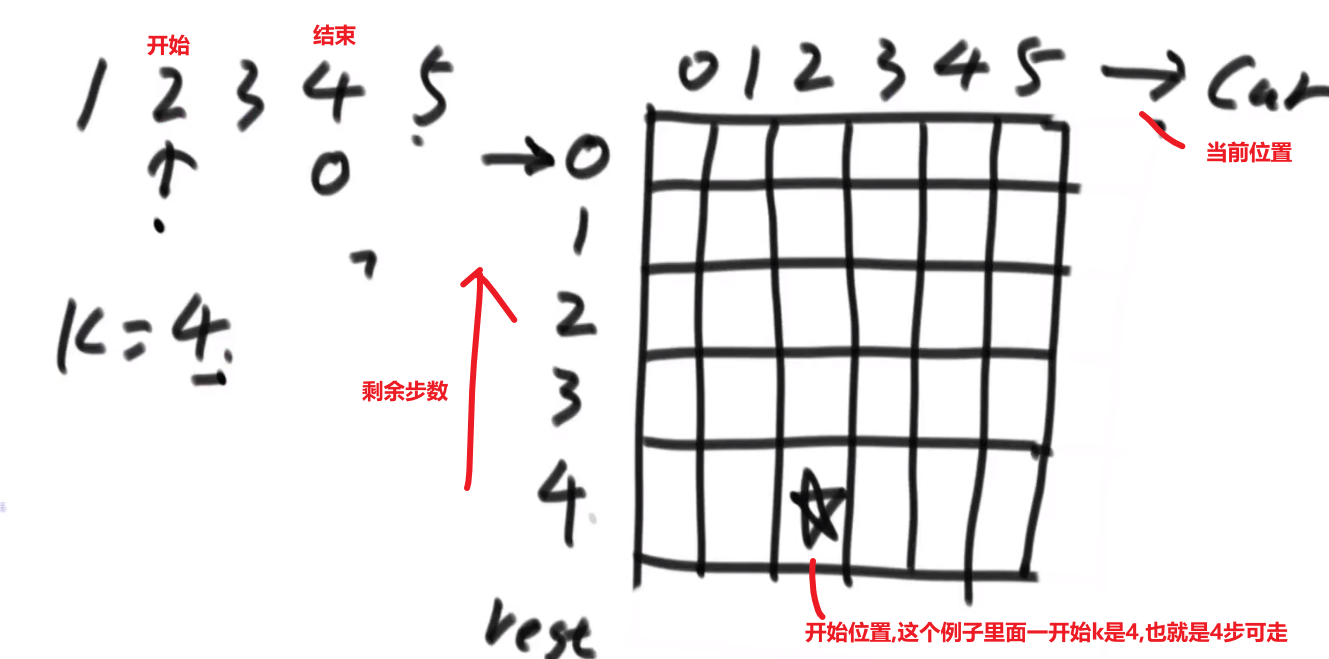 开始 结束
1 2 3 4 5
0
K=4
剩余步数
0 1 2 3 4 5 → Cur
当前位置
→ 0
1
2
3
4
rest
开始位置,这个例子里面一开始k是4,也就是4步可走